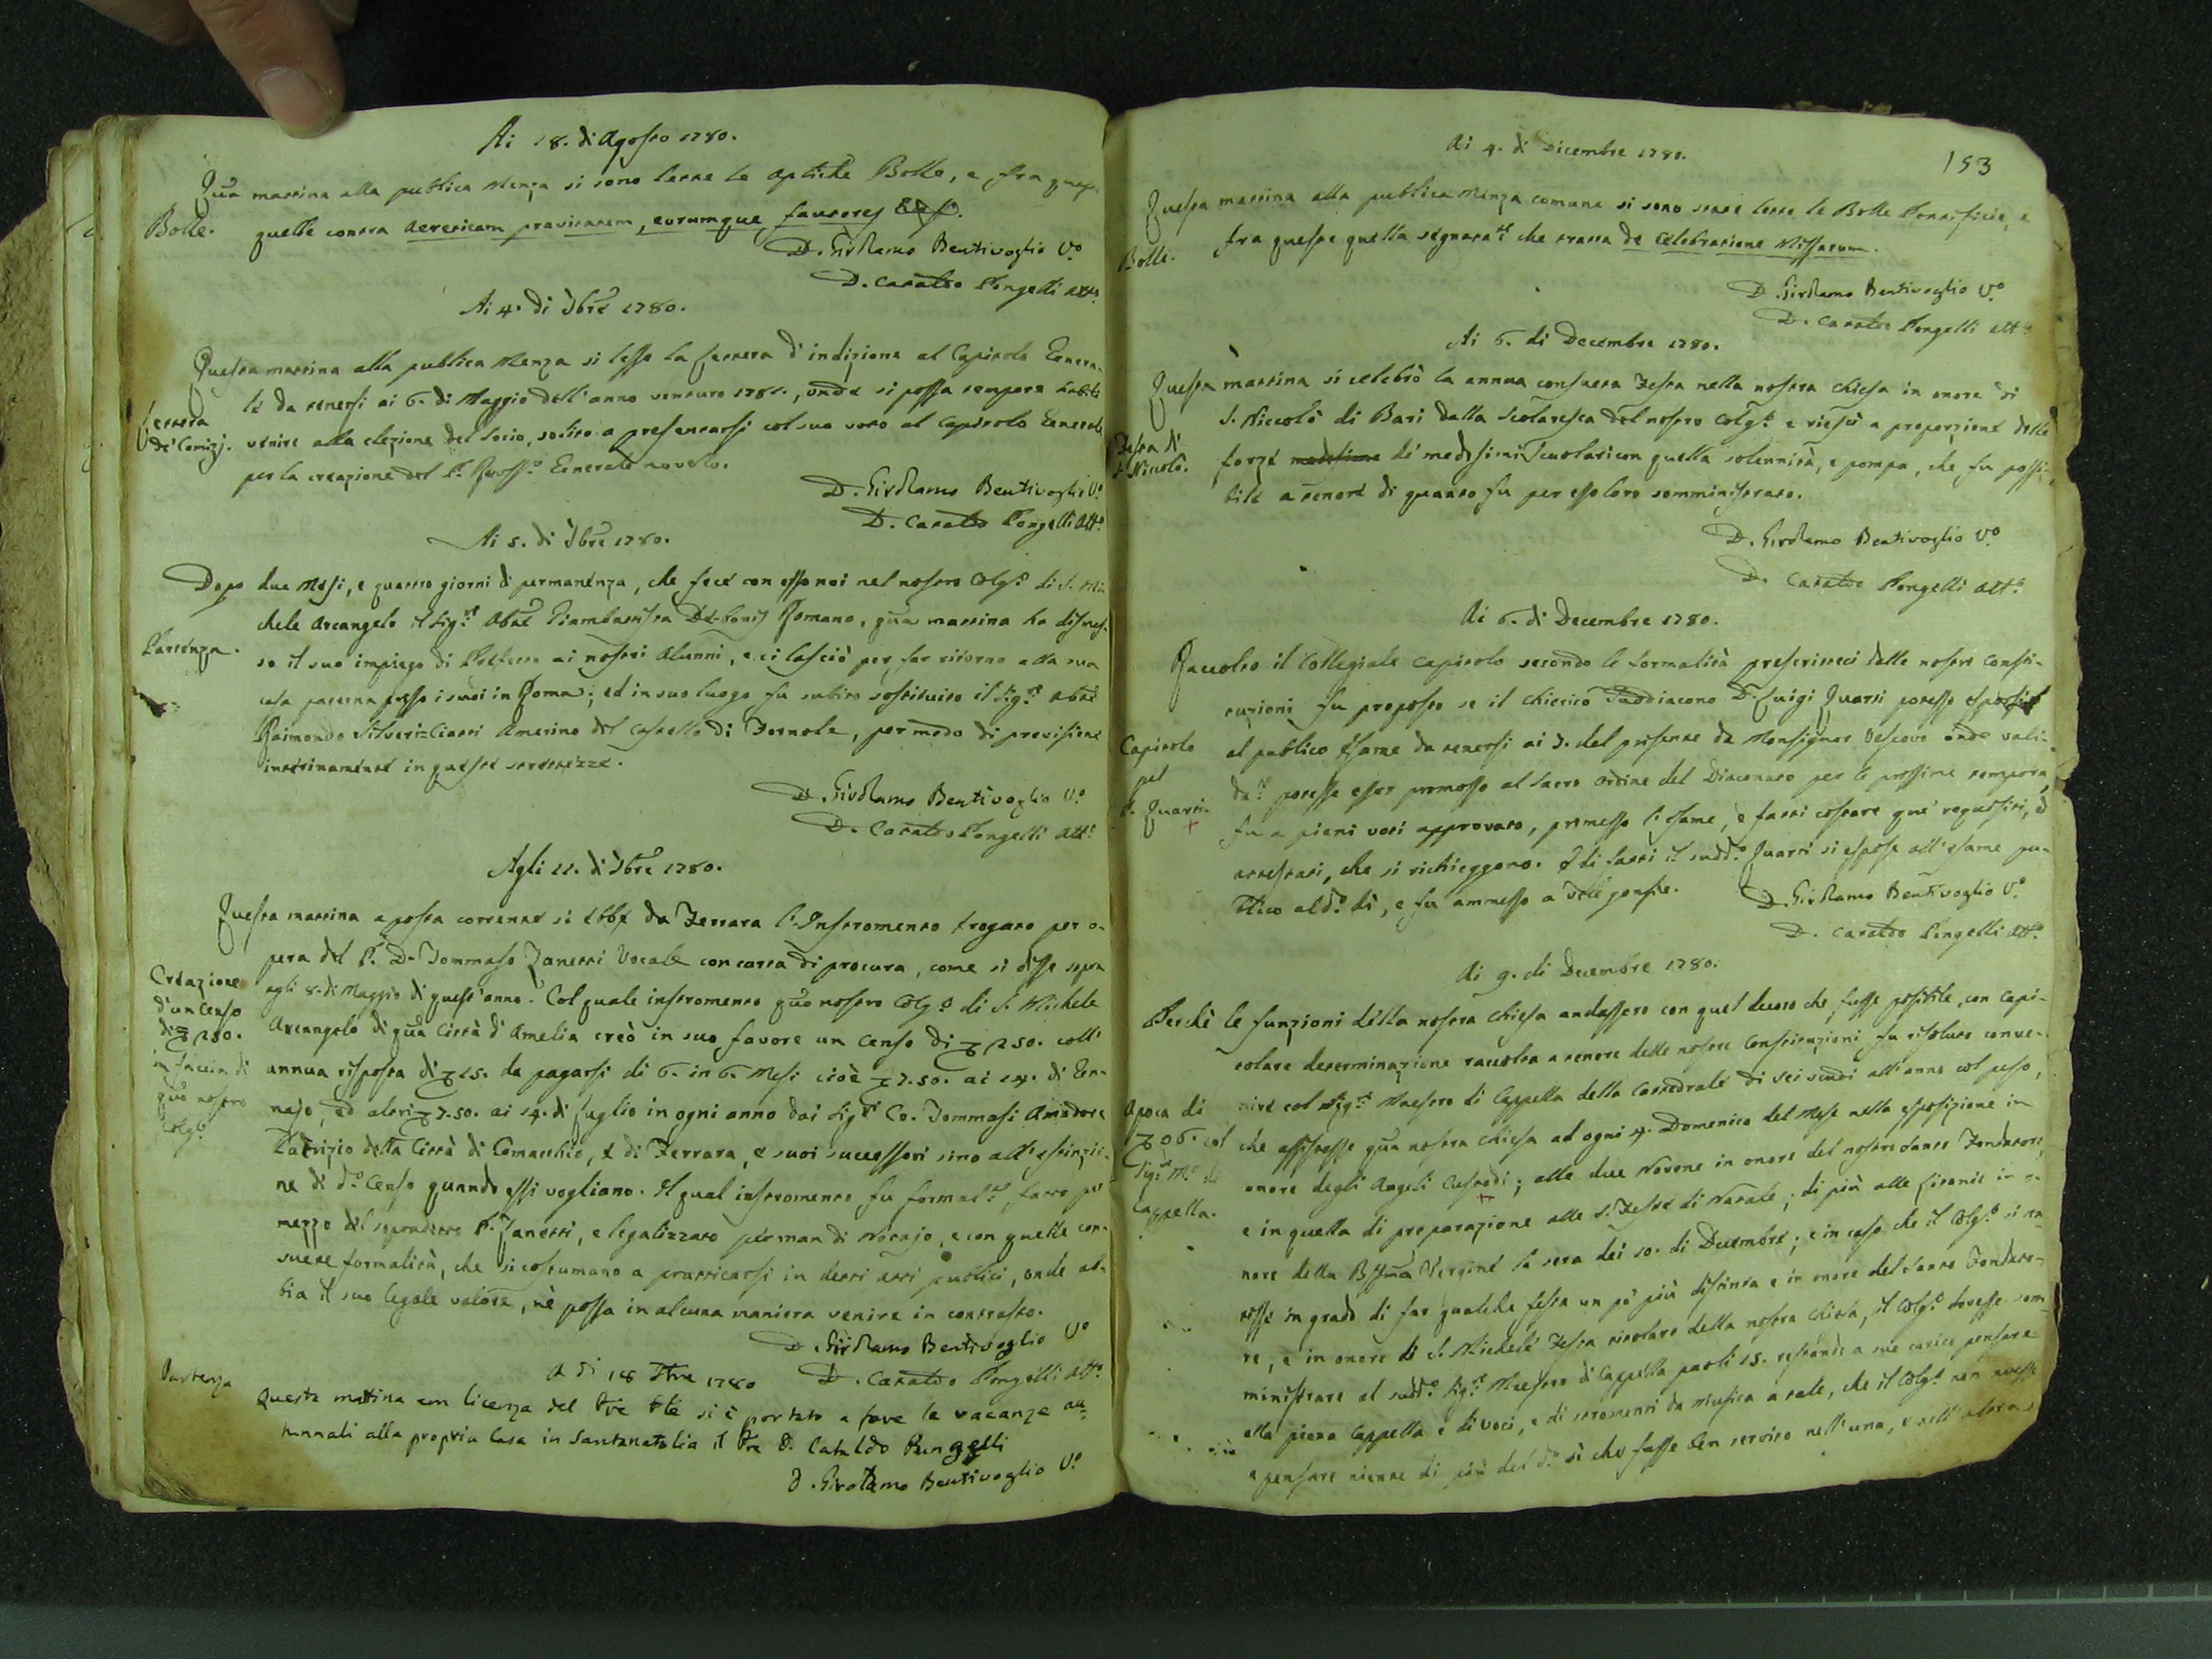 Ai 18. di Agosto 1780.
Qũa mattina alla publica Menza si sono lette le aptiche Bolle, e fra queste
Bolle.
quelle contra aereticam pravitatem, eorumque fautores
D. Girolamo Bentivoglio V.º
D. Cataldo Pongelli Att.º
Ai 4. di 7bre 1780.
Questa mattina alla publica Menza si lesse la Lettera d'indizione al Capitolo Genera-
le da tenersi ai 6. di Maggio dell'anno venturo 1781., onde si possa tempore habili
Lettera
de' Comizj.
venire alla elezione del Socio, solito a presentarsi col suo voto al Capitolo Generale
per la creazione del P. Revᵐᵒ Generale novello.
D. Girolamo Bentivoglio V.º
D. Cataldo Pongelli Att.º
Ai 5. di 7bre 1780.
Dopo due Mesi, e quattro giorni di permanenza, che fece con esso noi nel nostro Colg.º di S. Mi-
chele Arcangelo il Sig.ʳᵉ Abãe Giambattista Romano, qũa mattina ha dismes-
Partenza.
so il suo impiego di Prefetto ai nostri Alunni, e ci lasciò per far ritorno alla sua
casa paterna presso i suoi in Roma; ed in suo luogo fu subito sostituito il Sig.ʳᵉ Abãe
Raimondo Silveri=Ciatti Amerino del Castello di Fornole, per modo di provisione
interinamente in queste
D. Girolamo Bentivoglio V.º
D. Cataldo Pongelli Att.º
Agli 11. di 7bre 1780.
Questa mattina a posta corrente si ebbe da Ferrara l'Instromento rogato per o-
pera del P. D. Tommaso Zanetti Vocale con carta di procura, come si disse sopra
Creazione
d'un Censo
di 250.
in faccia di
qũo nostro
Colg.º
agli 8. di Maggio di quest'anno. Col quale instromento qũo nostro Colg.º di S. Michele
Arcangelo di qũa Città d'Amelia creò in suo favore un Censo di 250. coll'
annua risposta di 15. da pagarsi di 6. in 6. Mesi cioè 7.50. ai 14. di Gen-
najo, ed altri 7.50. ai 14. di Luglio in ogni anno dai Sig.ʳⁱ Co. Tommasi Amadore
Patrizio della Città di Comacchio, e di Ferrara, e suoi successori sino all'estinzio-
ne di d.º Censo quando essi vogliano. Il qual instromento fu formal.ᵗᵉ fatto per
mezzo del sopradetto P. Zanetti, e legalizzato per man di Notajo, e con quelle con-
suete formalità, che si costumano a pratticarsi in detti atti publici, onde ab-
bia il suo legale valore, nè possa in alcuna maniera venire in contrasto.
D. Girolamo Bentivoglio V.º
D. Cataldo Pongelli Att.º
A dì 18 7bre 1780
Partenza
Questa mattina con licenza del si è portato a fare le vacanze au=
tunnali alla propria Casa in Santanatolia il Pre D. Cataldo Pungelli
D. Girolamo Bentivoglio V.º
153
Ai 4. di Dicembre 1780.
Questa mattina alla publica Menza comune si sono state lette le Bolle Pontificie, e
Bolle.
fra queste quella segnata.ᵗᵉ che tratta de Celebratione Missarum.
D. Girolamo Bentivoglio V.º
D. Cataldo Pongelli Att.º
Ai 6. di Decembre 1780.
Questa mattina si celebrò la annua consueta Festa nella nostra Chiesa in onore di
S. Niccolò di Bari dalla Scolaresca del nostro Colg.º e riescì a proporzione delle
Festa di
S. Niccolò.
forze medesime de' medesimi Scuolari con quella solennità, e pompa, che fu possi-
bile a tenore di quanto fu per esso loro somministrato.
D. Girolamo Bentivoglio V.º
D. Cataldo Pongelli Att.º
Ai 6. di Decembre 1780.
Raccolto il Collegiale Capitolo secondo le formalità prescritteci dalle nostre Consti-
tuzioni fu proposto se il Chierico Suddiacono D. Luigi Quarti potesse esporsi
Capitolo
pel
P. Quarti.
al publico esame da tenersi ai 7. del presente da Monsignor Vescovo onde vali-
da.ᵗᵉ potesse esser promosso al Sacro Ordine del Diaconato per le prossime tempora,
fu a pieni voti approvato, premesso l'esame, e fatti costare que' requisiti, ed
attestati, che si richieggono. Indi fatti il sudd.º Quarti si espose all'esame pu-
blico al d.º dì, e fu ammesso a
D. Girolamo Bentivoglio V.º
D. Cataldo Pongelli Att.º
Ai 9. di Decembre 1780.
Perchè le funzioni della nostra Chiesa andassero con quel decoro che fusse possibile, con Capi-
tolare determinazione raccolta a tenore delle nostre Constituzioni fu risoluto conve-
Apoca di
06. col
Sig.ʳ M.º di
Cappella.
nire col Sig.ʳᵉ Maestro di Cappella della Cattedrale di sei scudi all'anno col peso,
che assistesse qũa nostra Chiesa ad ogni 4. Domenica del Mese nella esposizione in
onore degli Angeli Custodi; alle due Novene in onore del nostro Santo Fondatore,
e in quella di preparazione alle S. Feste di Natale; di più alle Litanie in o-
nore della Bssma Vergine la sera dei 10. di Decembre; e in caso che il Colg.º si tro-
vasse in grado di far qualche festa un pò più distinta e in onore del Santo Fondato-
re, e in onore di S. Michele Festa titolare della nostra Chiesa, il Colg.º dovesse som-
ministrare al sudd.º Sig.ʳᵉ Maestro di Cappella paoli 15. restando a sue carico pensare
alla piena Cappella e di voci, e di stromenti da musica a tale, che il Colg.º non avesse
a pensare niente di più del d.º sì che fusse ben servito nell'una, e nell'altra